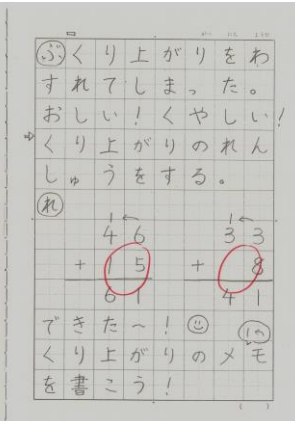 ぶ くり上がりをわ
すれてしまった。
おしい！くやしい！
くり上がりのれん
しゅうをする。
れ
1 1
46 33
+15 +8
61 41
できた〜！ 1の
くり上がりのメモ
を書こう！